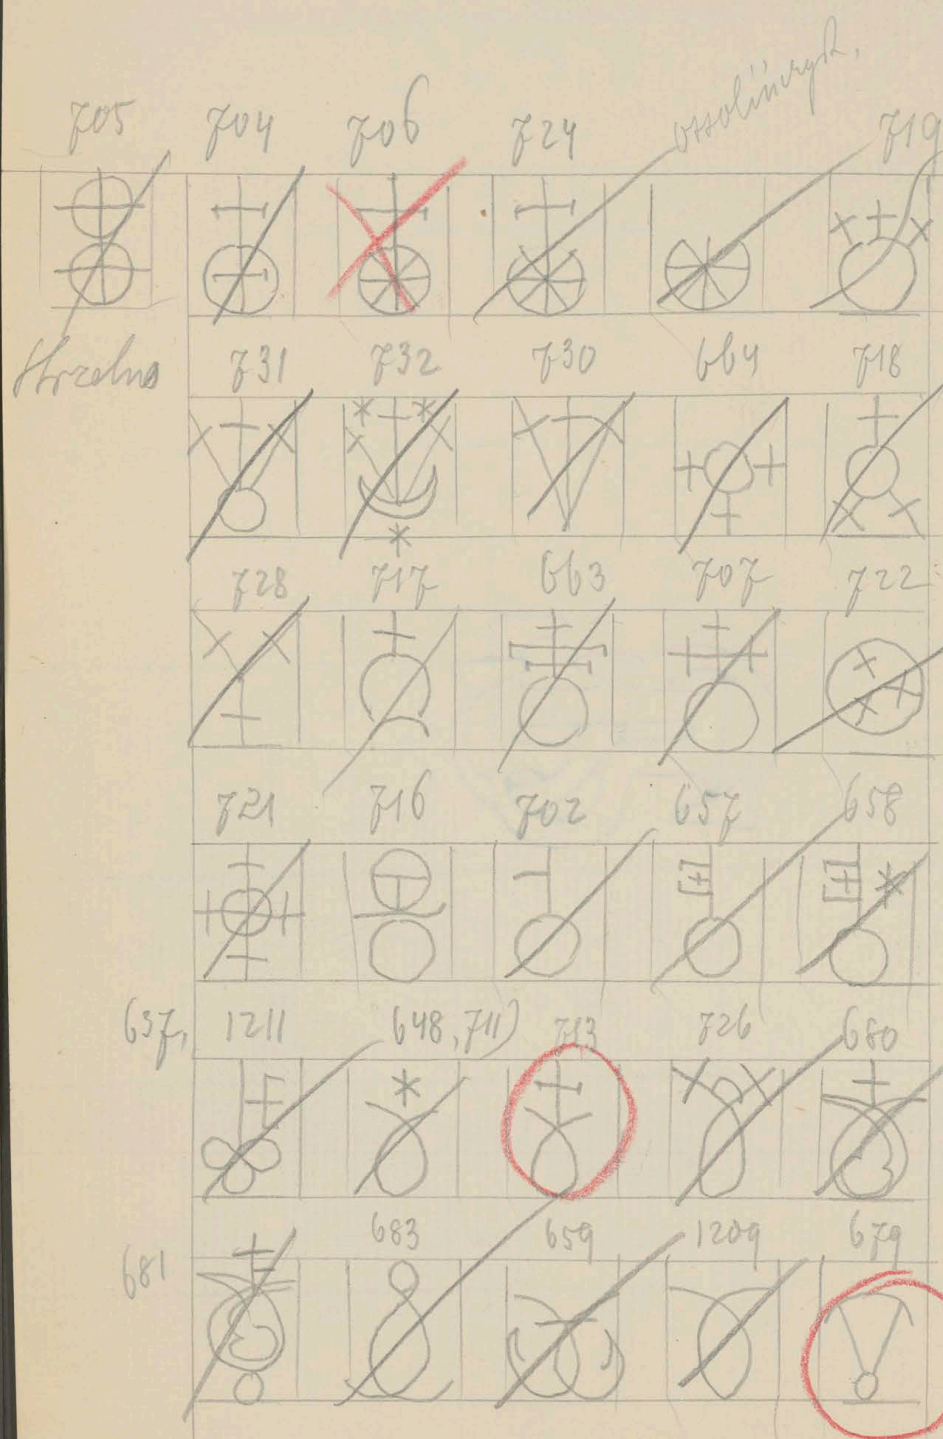 705 704 706 724 719
731 732 730 664 718
728 717 663 707 722
721 716 702 657 658
637, 1211 648, 711) 713 726 680
681 683 659 1209 679